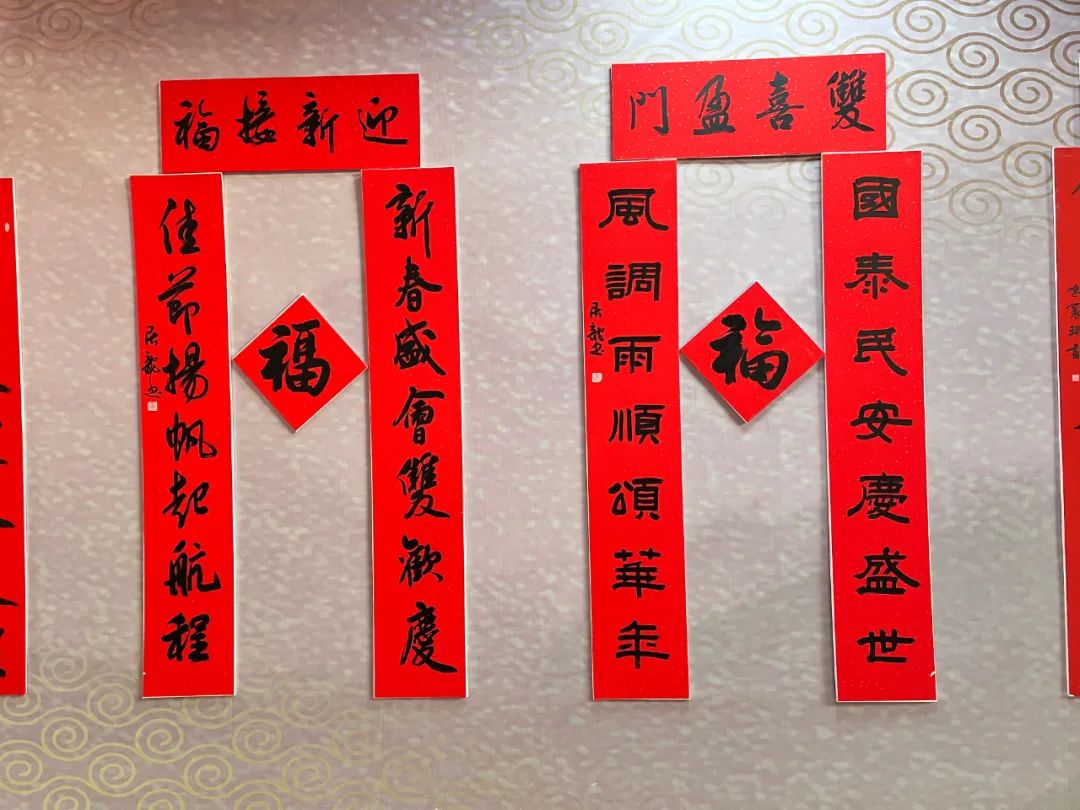 雙喜盈門
國泰民安慶盛世
福
風調雨順頌華年
迎新接福
新春盛會雙歡慶
福
佳節揚帆起航程